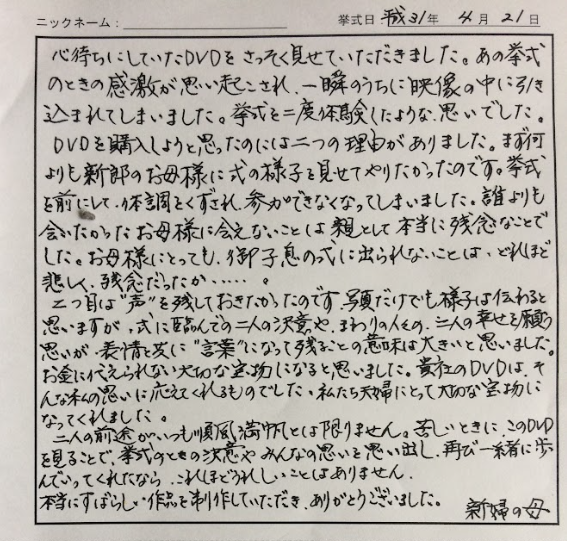 ニックネーム： 挙式日 平成31年 4月 21日
心待ちにしていたDVDをさっそく見せていただきました。あの挙式
のときの感激が思い起こされ、一瞬のうちに映像の中に引き
込まれてしまいました。挙式を二度体験したような思いでした。
DVDを購入しようと思ったのには二つの理由がありました。まず何
よりも新郎のお母様に式の様子を見せてやりたかったのです。挙式
を前にして、体調をくずされ、参加できなくなってしまいました。誰よりも
会いたかったお母様に会えないことは親として本当に残念なことで
した。お母様にとっても、御子息の式に出られないことは、どれほど
悲しく、残念だったか……。
二つ目は"声"を残しておきたかったのです。写真だけでも様子は伝わると
思いますが、式に臨んでの二人の決意や、まわりの人々の、二人の幸せを願う
思いが、表情と共に"言葉"になって残ることの意味は大きいと思いました。
お金に代えられない大切な宝物になると思いました。貴社のDVDは、そ
んな私の思いに応えてくれるものでした。私たち夫婦にとって大切な宝物に
なってくれました。
二人の前途がいつも順風満帆とは限りません。苦しいときに、このDVD
を見ることで、挙式のときの決意やみんなの思いを思い出し、再び一緒に歩
んでいってくれたなら、これほどうれしいことはありません。
本当にすばらしい作品を制作していただき、ありがとうございました。
新婦の母